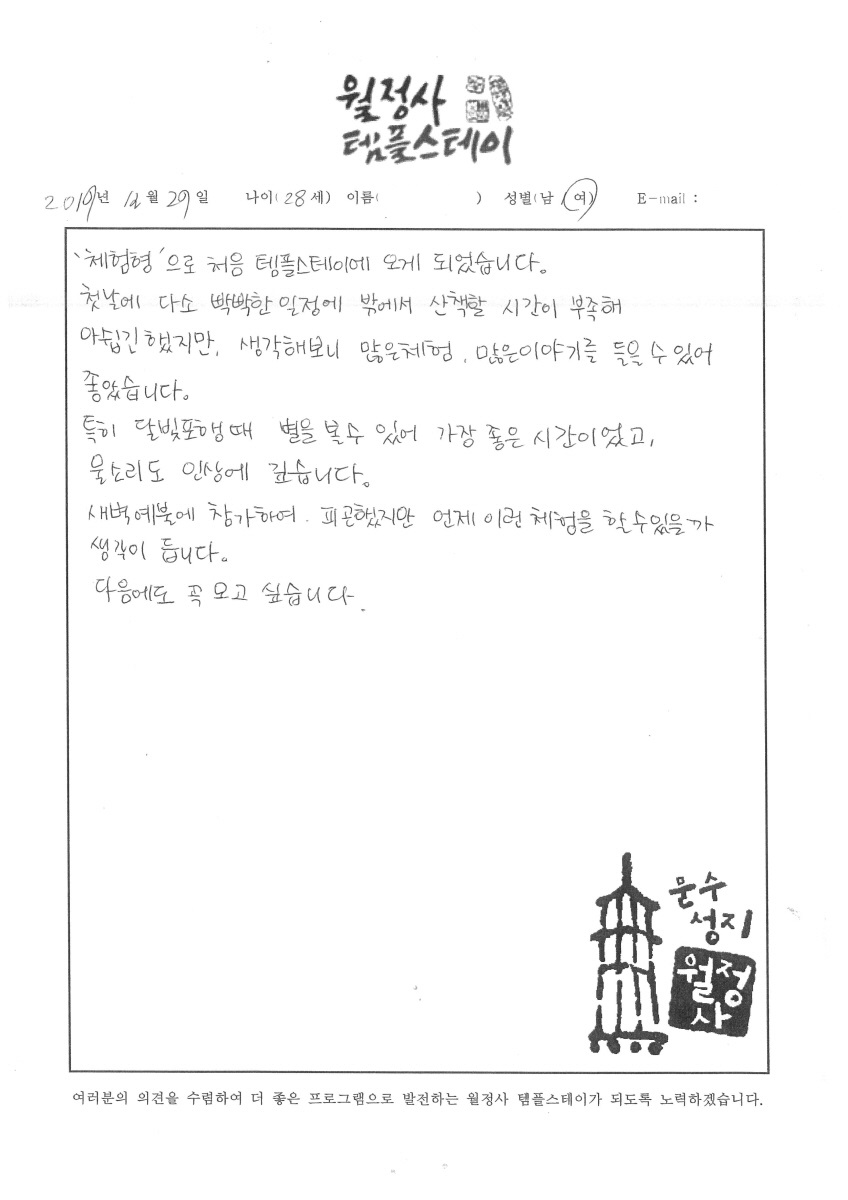 월정사
템플스테이
2019년 12월 29일 나이(28세) 이름( ) 성별(남, 여) E-mail :
'체험형'으로 처음 템플스테이에 오게 되었습니다.
첫날에 다소 빡빡한 일정에 밖에서 산책할 시간이 부족해
아쉽긴 했지만, 생각해보니 많은체험, 많은이야기를 들을 수 있어
좋았습니다.
특히 달빛포행때 별을 볼수 있어 가장 좋은 시간이었고,
물소리도 인상에 깊습니다.
새벽예불에 참가하여. 피곤했지만 언제 이런 체험을 할수있을까
생각이 듭니다.
다음에도 꼭 오고 싶습니다.
문수
성지
월정
사
여러분의 의견을 수렴하여 더 좋은 프로그램으로 발전하는 월정사 템플스테이가 되도록 노력하겠습니다.